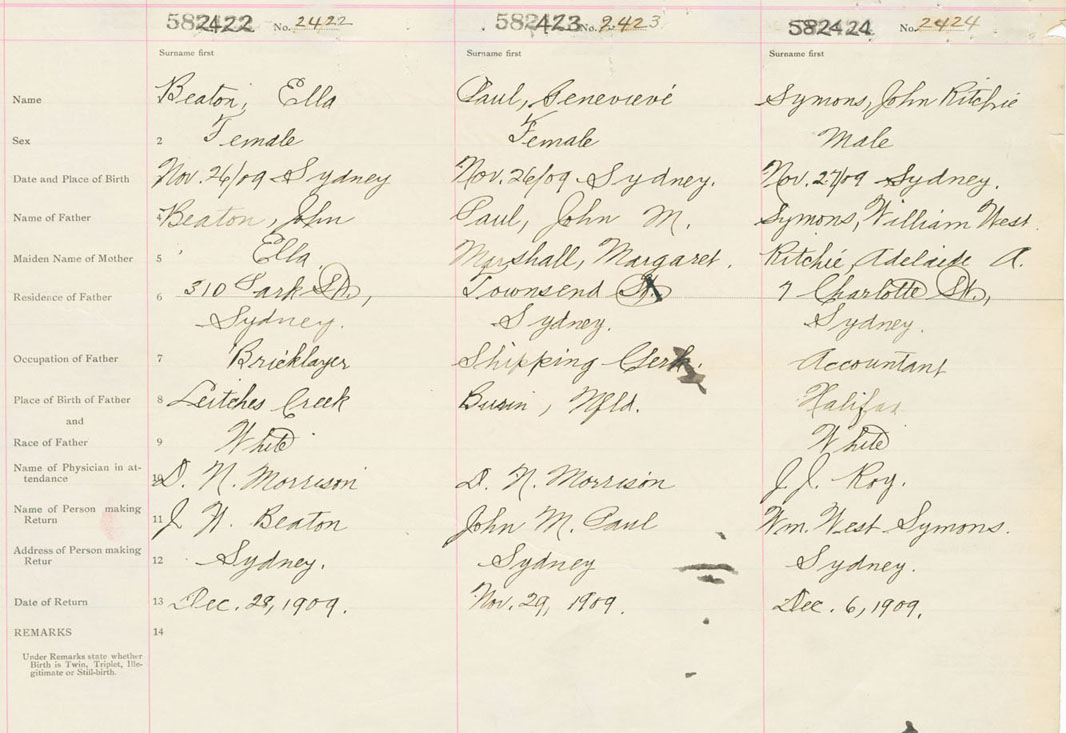 582422 No. 2422 582423 No. 2423 582424 No. 2424
Surname first Surname first Surname first
Name Beaton, Ella Paul, Genevievé Symons, John Ritchie
Sex 2 Female Female Male
Date and Place of Birth Nov. 26/09 Sydney Nov. 26/09 Sydney. Nov. 27/09 Sydney.
Name of Father 4 Beaton, John Paul, John M. Symons, William West.
Maiden Name of Mother 5 Ella Marshall, Margaret. Ritchie, Adelaide A.
Residence of Father 6 310 Park St., Townsend St. 7 Charlotte St.,
Sydney. Sydney. Sydney.
Occupation of Father 7 Bricklayer Shipping Clerk. Accountant
Place of Birth of Father 8 Leitches Creek Burin, Nfld. Halifax
and
Race of Father 9 White White
Name of Physician in at-
tendance 10 D. N. Morrison D. N. Morrison J. J. Roy.
Name of Person making
Return 11 J. W. Beaton John M. Paul Wm. West Symons.
Address of Person making
Retur 12 Sydney. Sydney Sydney.
Date of Return 13 Dec. 28, 1909. Nov. 29, 1909. Dec. 6, 1909.
REMARKS 14
Under Remarks state whether
Birth is Twin, Triplet, Ille-
gitimate or Still-birth.